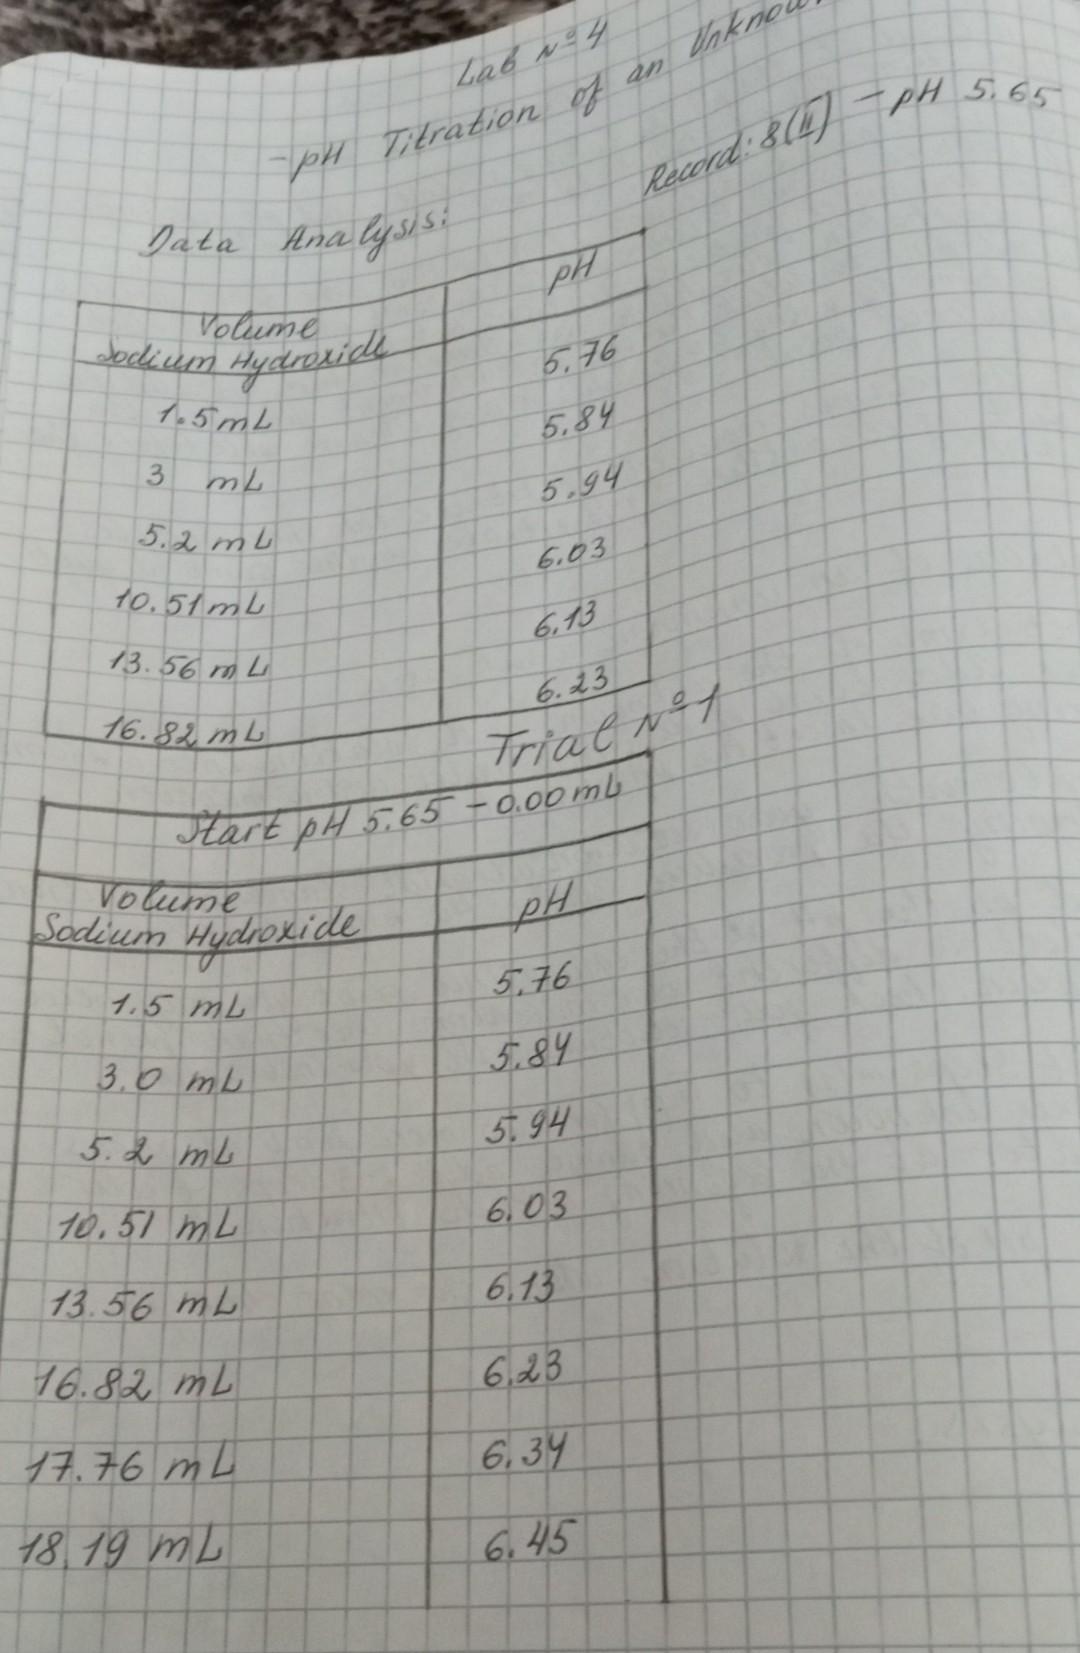 Lab № 4
- pH Titration of an
Record: 8(II) - pH 5.65
Data Analysis:
Volume
Sodium Hydroxide pH
1.5 mL 5.76
3 mL 5.84
5.2 mL 5.94
10.51 mL 6.03
13.56 mL 6.13
16.82 mL 6.23
Trial № 1
Start pH 5.65 - 0.00 mL
Volume
Sodium Hydroxide pH
1.5 mL 5.76
3.0 mL 5.84
5.2 mL 5.94
10.51 mL 6.03
13.56 mL 6.13
16.82 mL 6.23
17.76 mL 6.34
18.19 mL 6.45